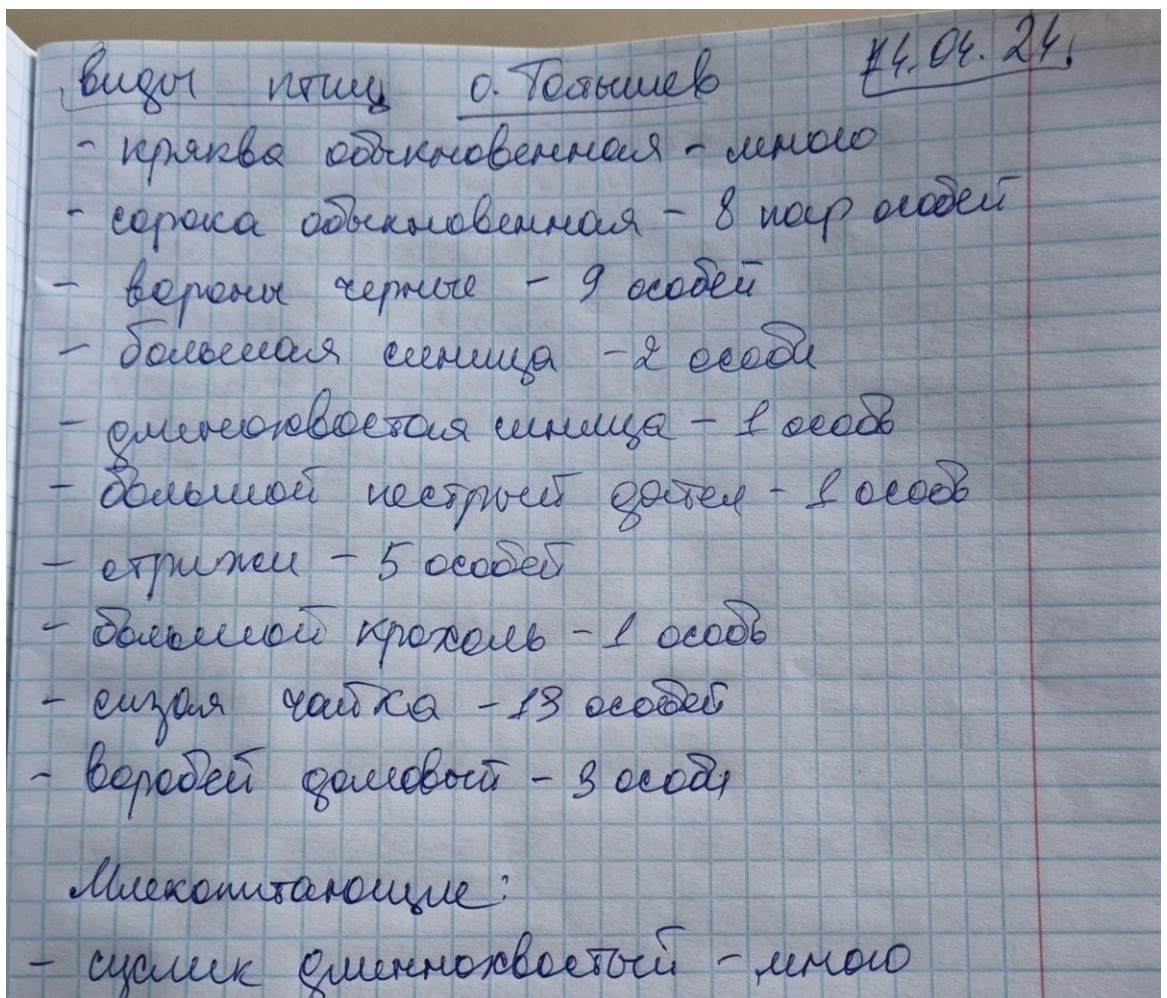 виды птиц о. Татышев 14.04.24.
- кряква обыкновенная - много
- сорока обыкновенная - 8 пар особей
- вороны черные - 9 особей
- большая синица - 2 особи
- длиннохвостая синица - 1 особь
- большой пестрый дятел - 1 особь
- стрижи - 5 особей
- большой крохаль - 1 особь
- сизая чайка - 13 особей
- воробей домовый - 3 особи
Млекопитающие:
- суслик длиннохвостый - много